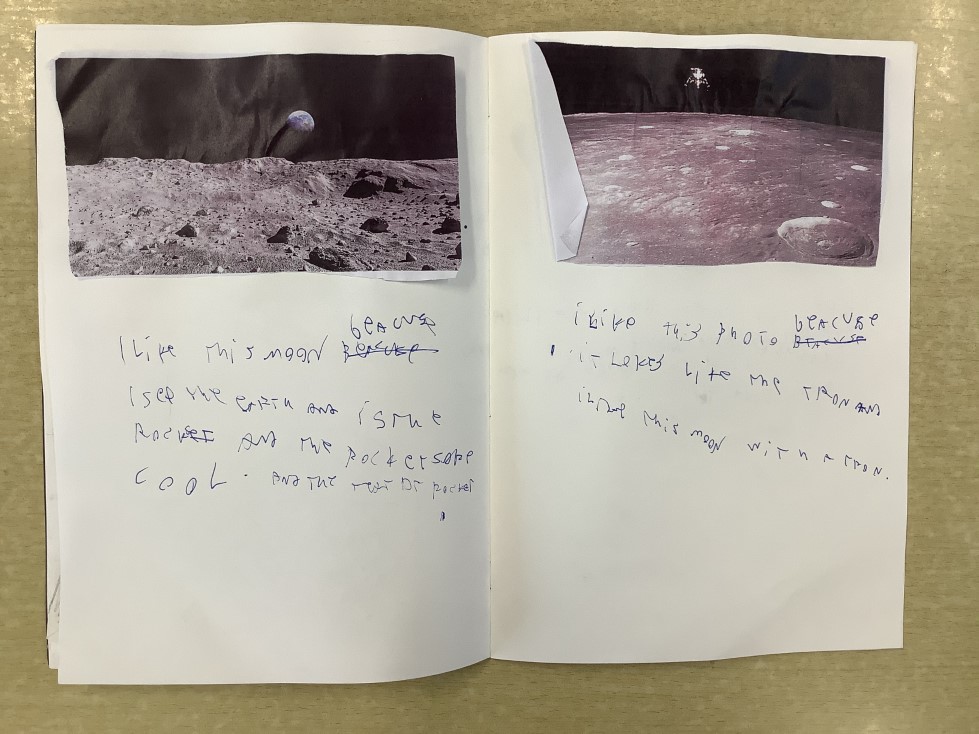 beacuse
I like this moon beacuse
I see the earth and is the
rocket and the rockets are
cool. and the rocket
i like this photo beacuse
beacuse
it lokes like the tron and
this moon with a tron.